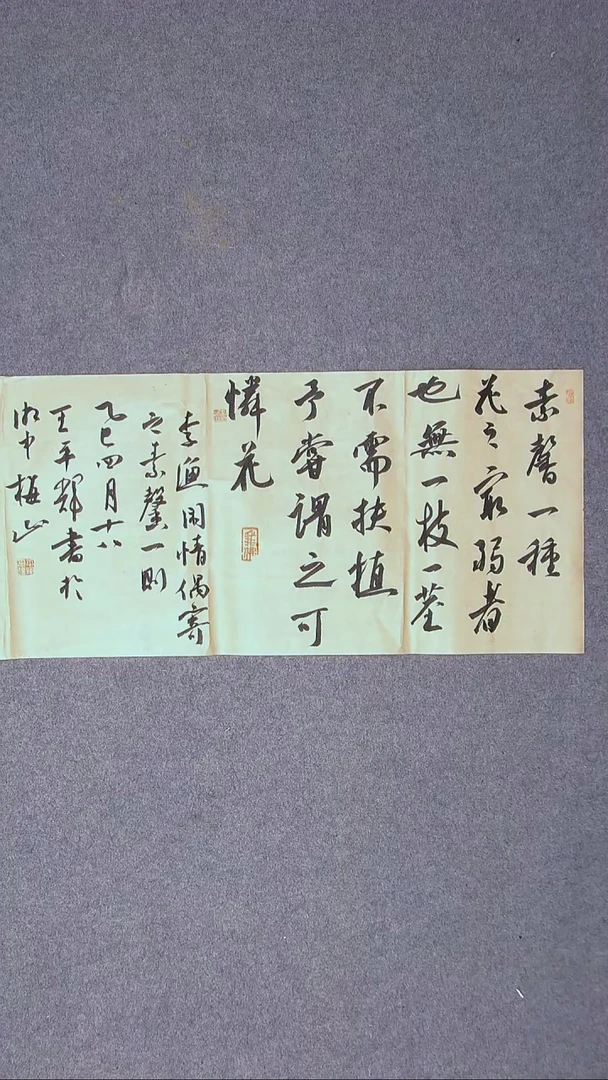 素馨一種
花之最弱者
也無一枝一莖
不需扶植
予嘗謂之可
憐花
李漁閑情偶寄
之素馨一則
乙巳四月十八
王平輝書於
湘中梅山